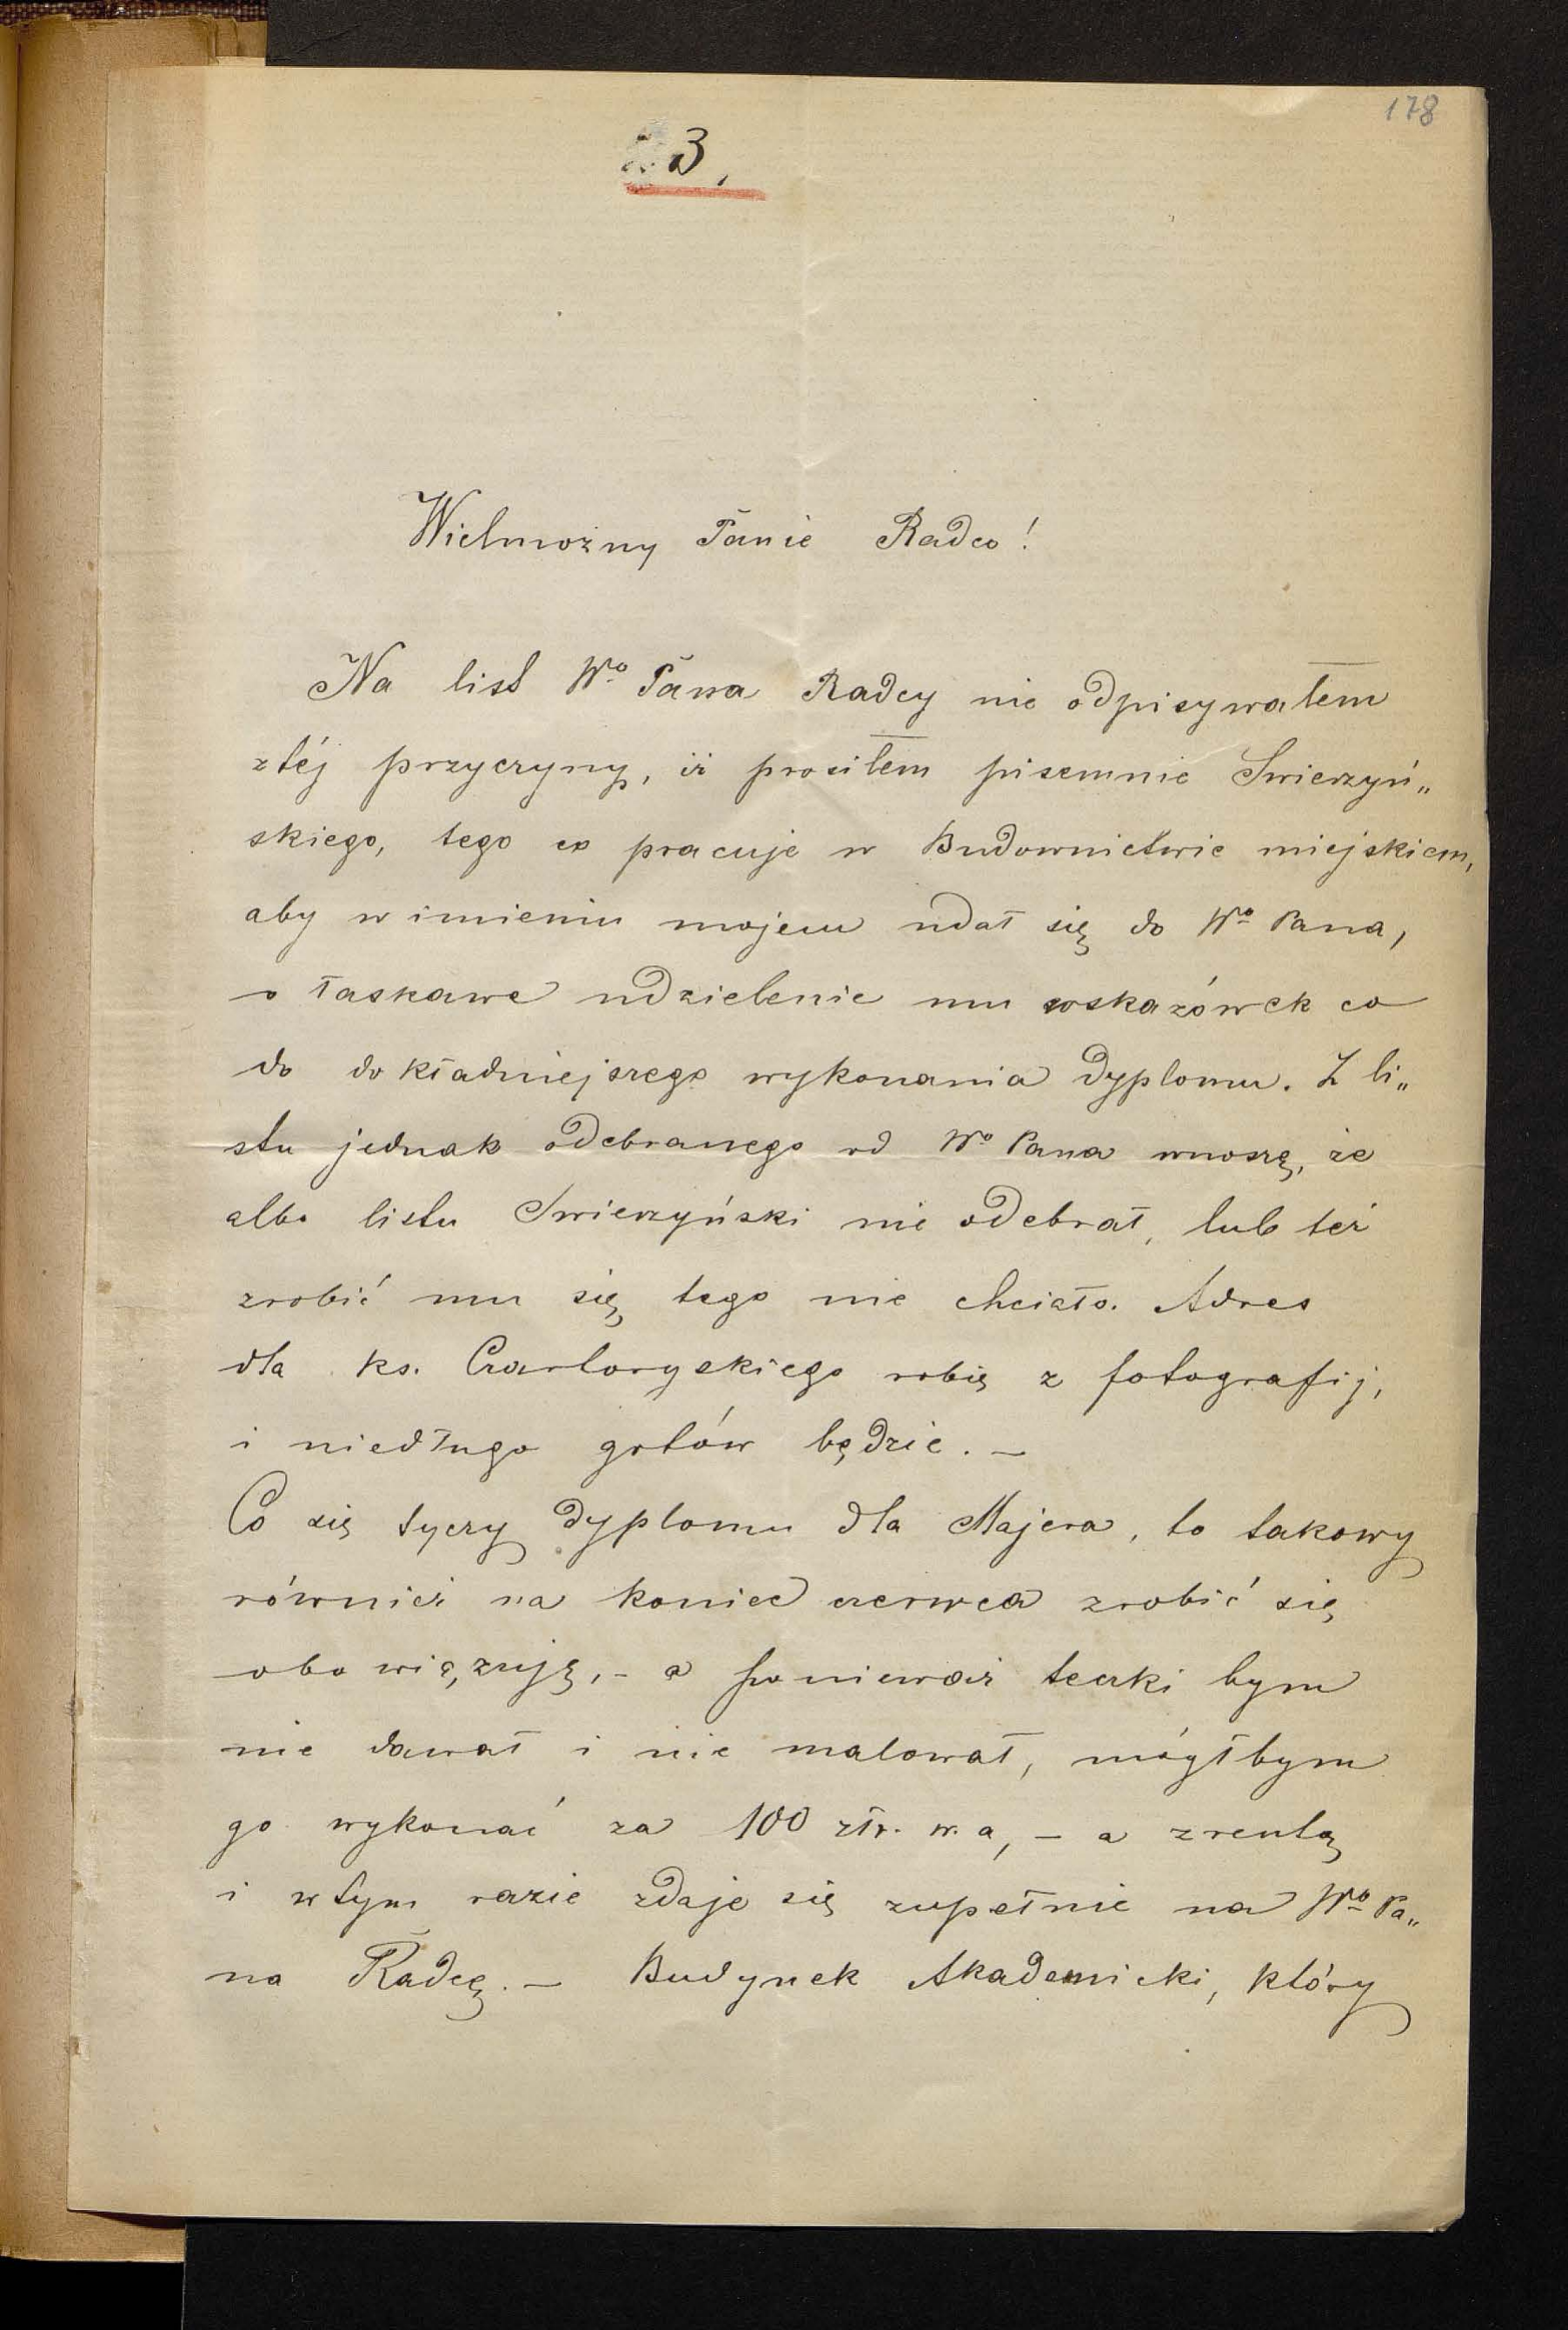 178
3,
Wielmożny Panie Radco!
Na list Wº Pana Radcy nie odpisywałem
z téj przyczyny, iż prosiłem pisemnie Swierzyń„
skiego, tego co pracuje w Budownictwie miejskiem,
aby w imieniu mojem udał się do Wº Pana,
o łaskawe udzielenie mu wskazówek co
do dokładniejszego wykonania dyplomu. Z li„
stu jednak odebranego od Wº Pana wnoszę, że
albo listu Swierzyński nie odebrał, lub też
zrobić mu się tego nie chciało. Adres
dla ks. Czartoryskiego robię z fotografij,
i niedługo gotów będzie. –
Co się tyczy dyplomu dla Majera, to takowy
również na koniec czerwca zrobić się
obowiązuję, – a ponieważ teczki bym
nie dawał i nie malował, mógłbym
go wykonać za 100 złr. w. a, – a zresztą
i w tym razie zdaję się zupełnie na Wº Pa„
na Radcę. – Budynek Akademicki, który